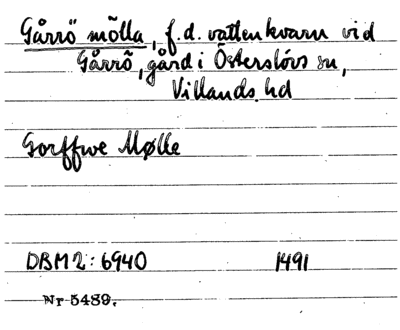 Gårrö mölla, f.d. vattenkvarn vid
Gårrö, gård i Österslövs sn,
Villands hd
Gorffwe Mølle
DBM2: 6940 1491
Nr 5489.